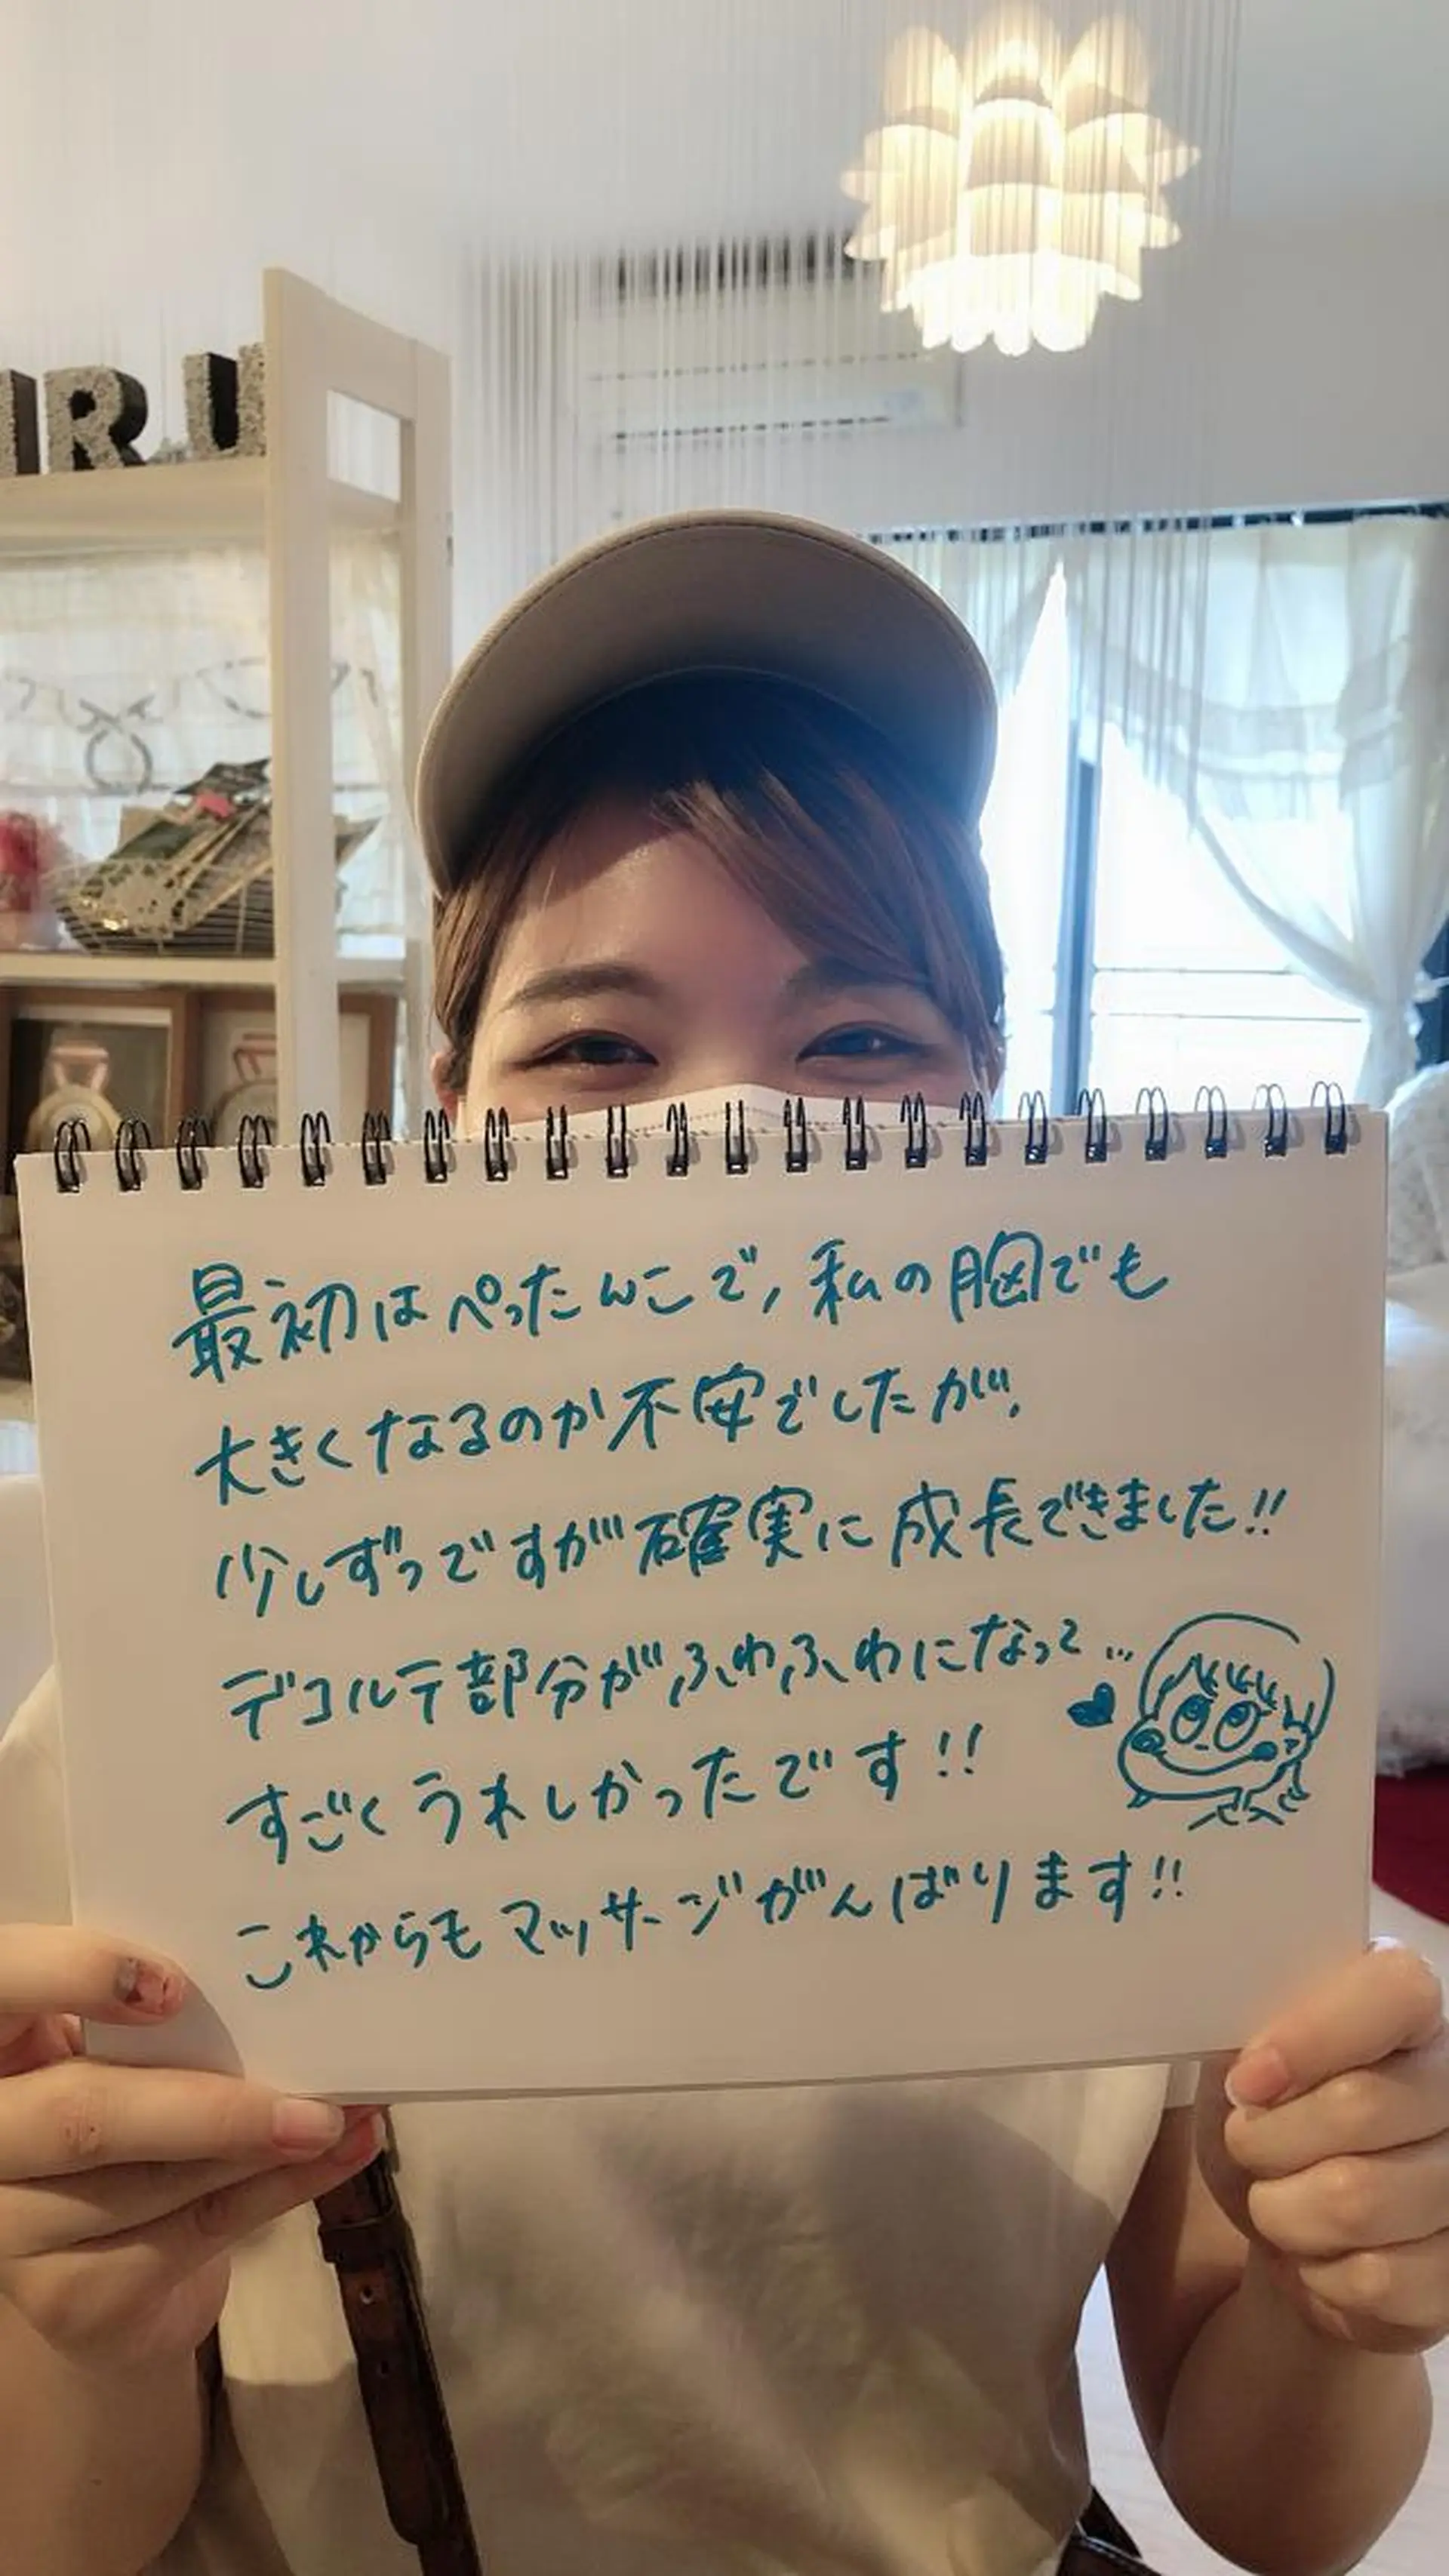 IRU
最初はぺったんこで,私の胸でも
大きくなるのか不安でしたが、
少しずつですが確実に成長できました!!
デコルテ部分がふわふわになって…
すごくうれしかったです!!
これからもマッサージがんばります!!